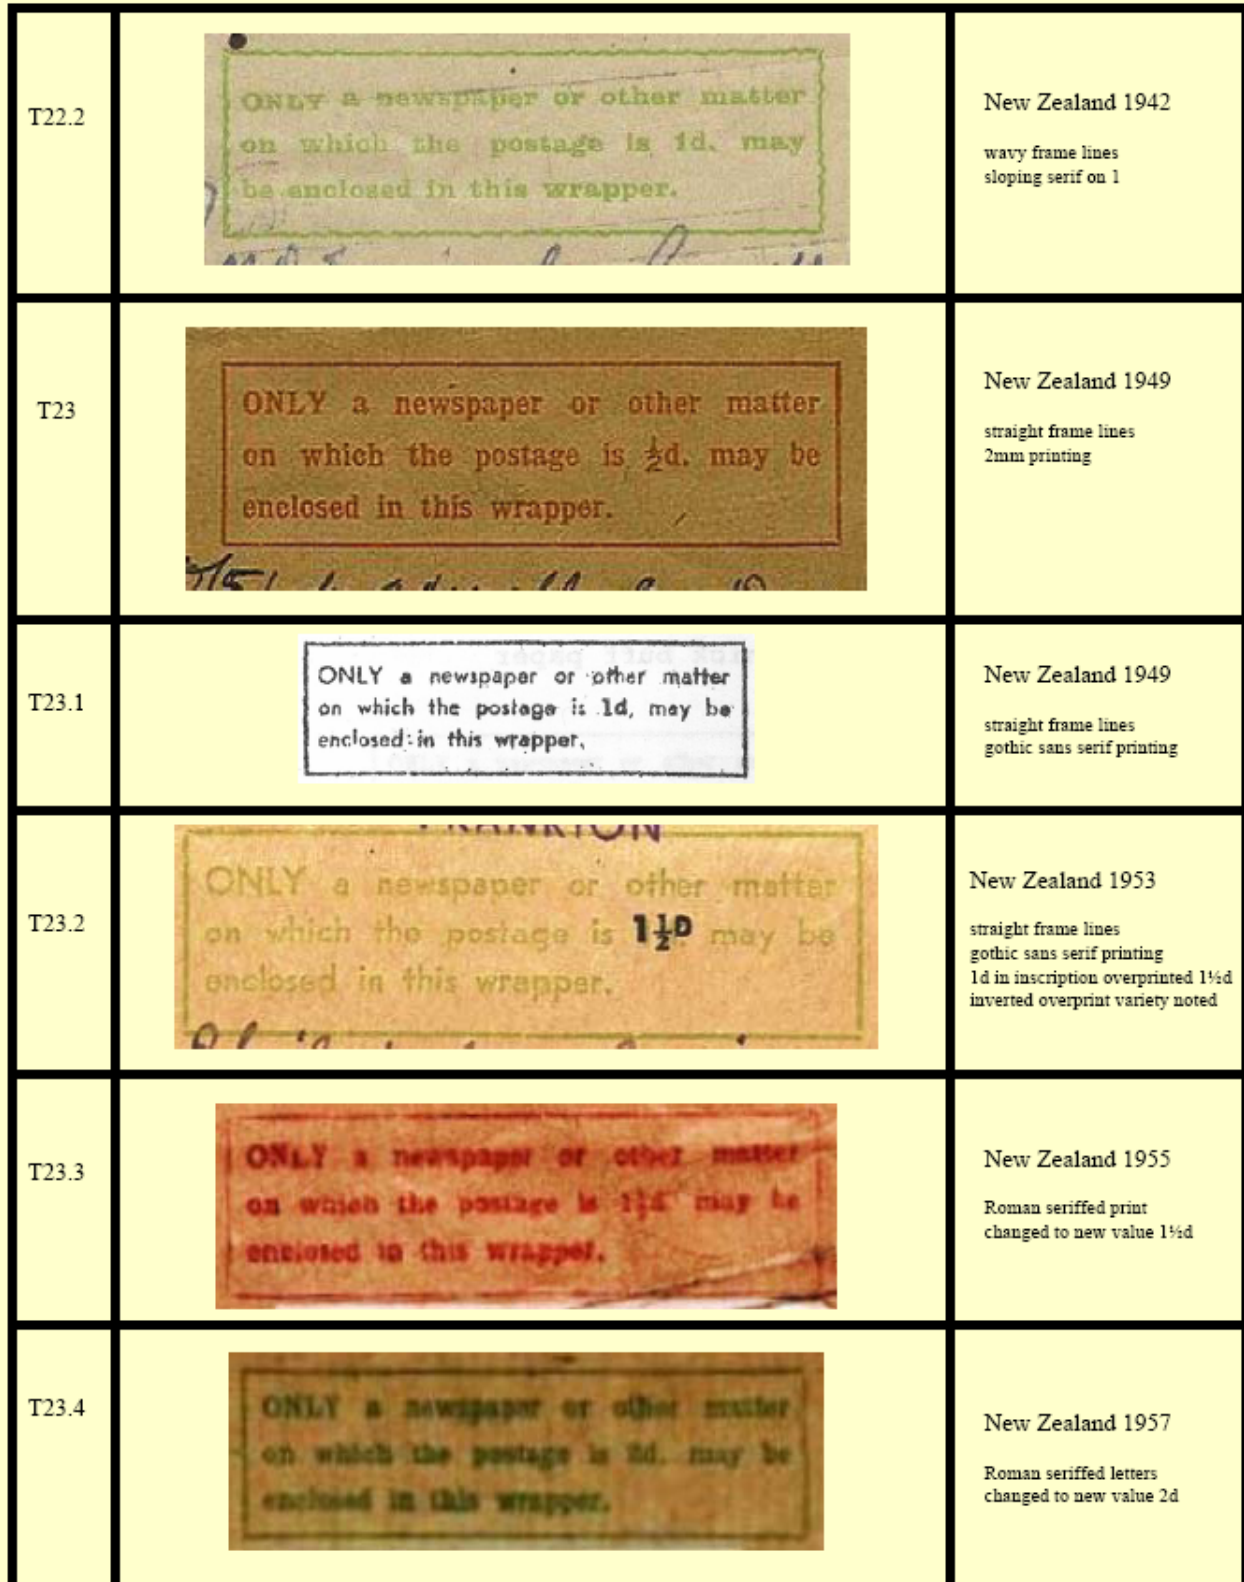 T22.2
ONLY a newspaper or other matter
on which the postage is 1d. may
be enclosed in this wrapper.
New Zealand 1942
wavy frame lines
sloping serif on 1
T23
ONLY a newspaper or other matter
on which the postage is ½d. may be
enclosed in this wrapper.
New Zealand 1949
straight frame lines
2mm printing
T23.1
ONLY a newspaper or other matter
on which the postage is 1d, may be
enclosed in this wrapper.
New Zealand 1949
straight frame lines
gothic sans serif printing
T23.2
FRANKTON
ONLY a newspaper or other matter
on which the postage is 1½D may be
enclosed in this wrapper.
New Zealand 1953
straight frame lines
gothic sans serif printing
1d in inscription overprinted 1½d
inverted overprint variety noted
T23.3
ONLY a newspaper or other matter
on which the postage is 1½d may be
enclosed in this wrapper.
New Zealand 1955
Roman seriffed print
changed to new value 1½d
T23.4
ONLY a newspaper or other matter
on which the postage is 2d. may be
enclosed in this wrapper.
New Zealand 1957
Roman seriffed letters
changed to new value 2d